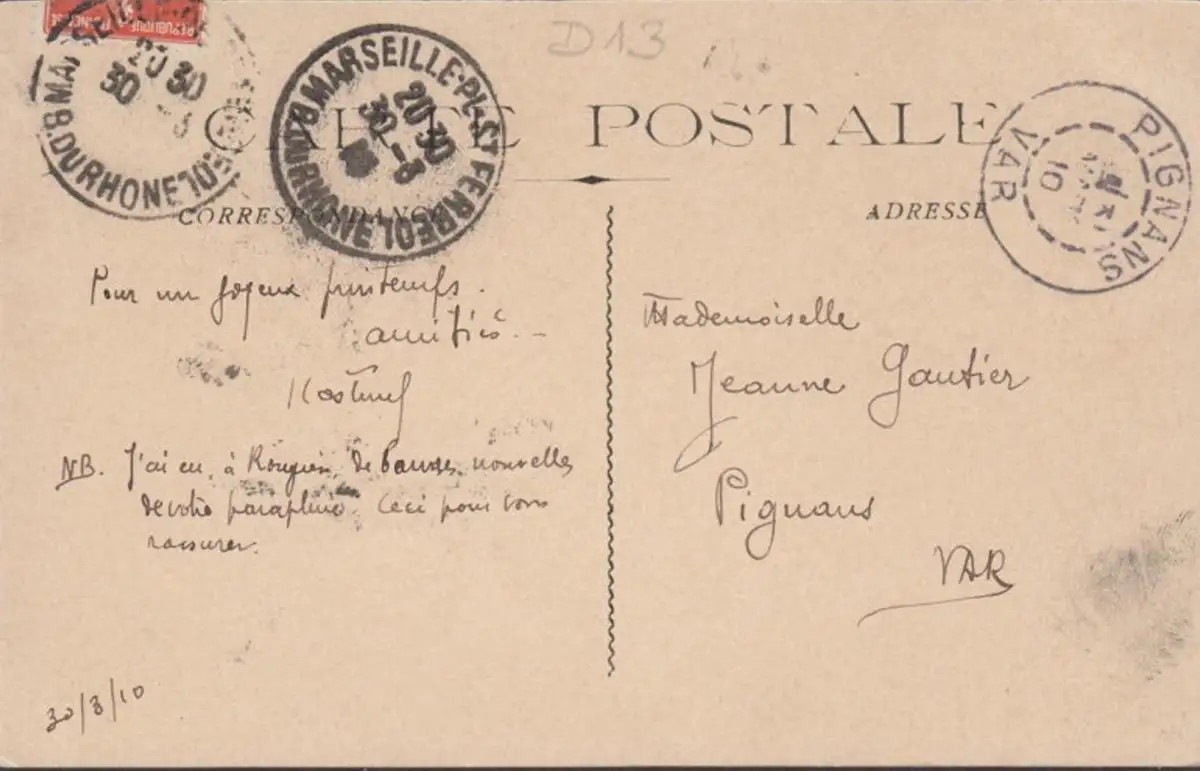 REPUBLIQUE FRANÇAISE
D13
MARSEILLE-PL. ST FERREOL
20 30
30 -3
BCHES DU RHONE
MARSEILLE
20 30
30
B. DU RHONE
CARTE POSTALE
CORRESPONDANCE
ADRESSE
PIGNANS
10
VAR
Pour un joyeux printemps.
amitiés.
NB. J'ai eu, à Rougiers, de bonnes nouvelles
de votre parapluie. Ceci pour vous
rassurer.
30/3/10
Mademoiselle
Jeanne Gautier
Pignans
VAR